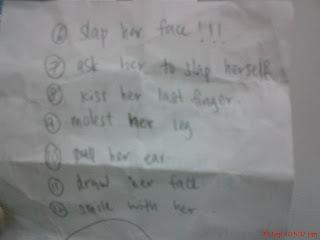 ⑥ slap her face !!!
⑦ ask her to slap herself
⑧ kiss her last finger.
⑨ molest her leg
⑩ pull her ear
⑪ draw her face
⑫ smile with her